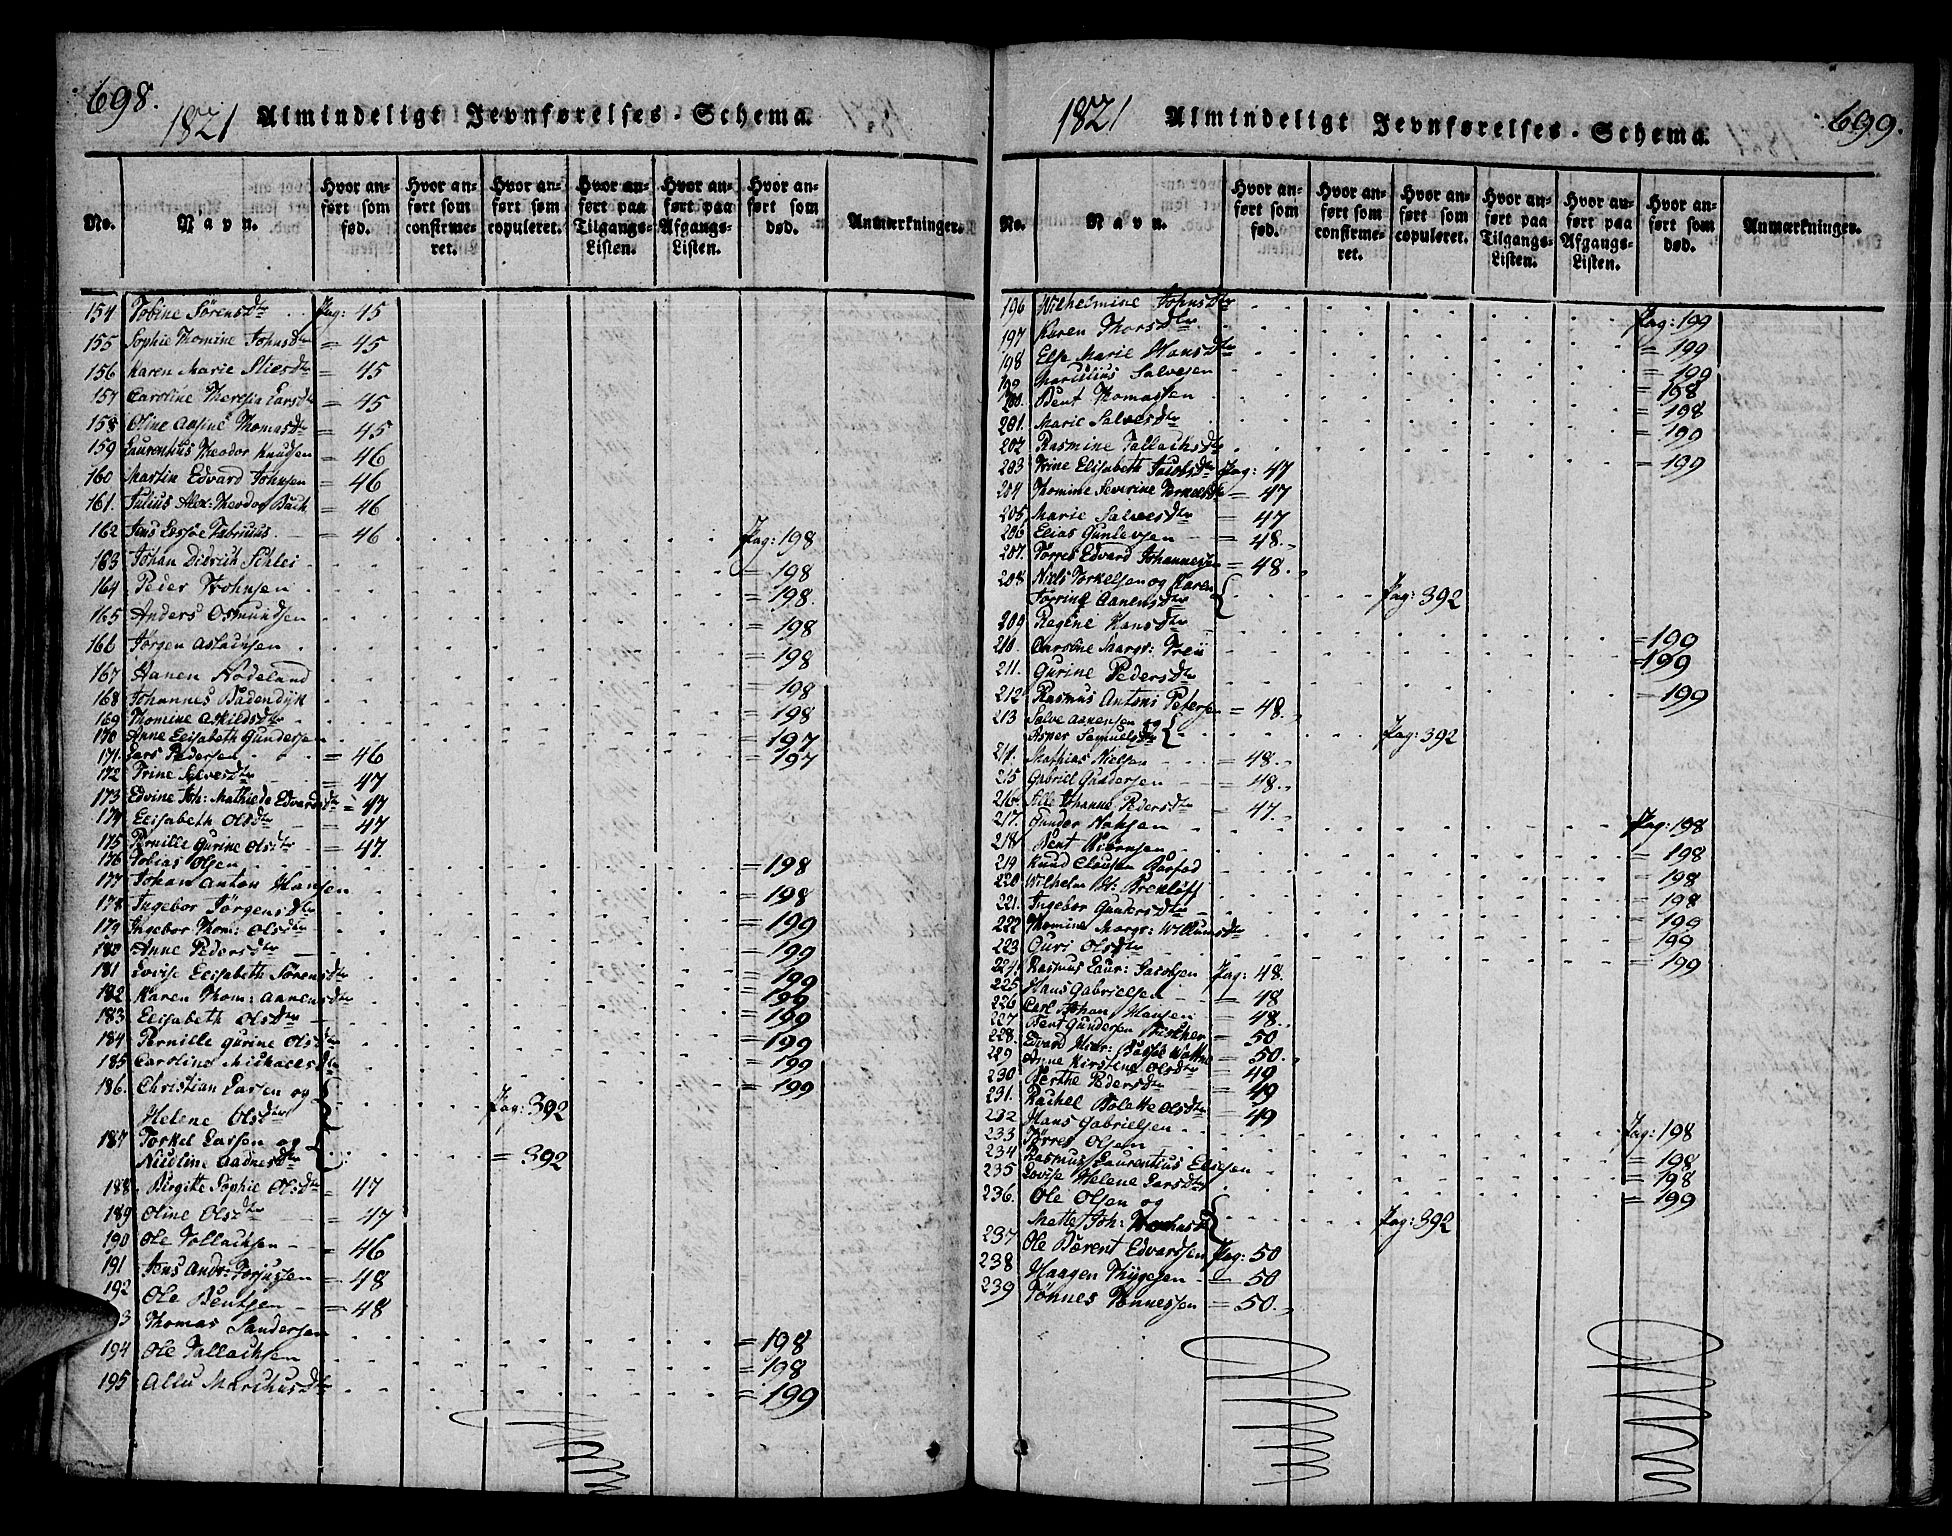 698.
1821 Almindeligt Jevnførelses-Schema.
No. Navn. Hvor anført som fød. Hvor anført som confirmeret. Hvor anført som copuleret. Hvor anført paa Tilgangs-Listen. Hvor anført paa Afgangs-Listen. Hvor anført som død. Anmærkninger.
154 Tobine Sørensdtr Pag: 45
155 Sophie Thomine Johnsdtr = 45
156 Karen Marie Stiesdtr = 45
157 Caroline Theresia Larsdtr = 45
158 Oline Aasine Thomasdtr = 45
159 Laurentius Theodor Knudsen = 46
160 Martin Edvard Johnsen = 46
161. Julius Alex: Theodor Bach = 46
162 Jens Fabritius = 46
163 Johan Didrich Schlei Pag: 198
164 Peder Johnsen = 198
165 Anders Osmundsen = 198.
166 Jørgen Aslachsen = 198
167 Hanen Rödeland = 198
168 Johannes Badendyk = 198
169 Thomine Askildsdtr = 198
170 Anne Elisabeth Gundersen = 197
171. Lars Pedersen = 46 = 197
172 Trine Salvesdtr = 47
173 Edvine Joh: Mathilde Edvardsdtr = 47
174 Elisabeth Olsdtr = 47
175 Pernille Gurine Olsdtr = 47.
176 Tobias Olsen = 198
177 Johan Anton Hansen = 198
178 Ingebor Jörgensdtr = 199
179 Ingebor Thom: Olsdtr = 199
180 Anne Pedersdtr = 199
181 Lovise Elisabeth Sörensdtr = 199
182 Karen Thom: Aanensdtr = 199
183 Elisabeth Olsdtr = 199
184 Pernille Gurine Olsdtr = 199
185 Caroline Michaelsdtr = 199
186. Christian Larsen og
Helene Olsdtr Pag: 392
187 Torkel Larsen og
Nicoline Aadnesdtr = 392
188. Birgitte Sophie Olsdtr = 47
189 Oline Olsdtr = 47
190 Ole Tollachsen = 46
191 Jens Andr: Torjussen = 48
192 Ole Bentsen = 48
3 Thomas Sandersen = 198
194 Ole Tallachsen = 198
195 Marchusdtr = 199
699.
1821 Almindeligt Jevnførelses-Schema.
No. Navn. Hvor anført som fød. Hvor anført som confirmeret. Hvor anført som copuleret. Hvor anført paa Tilgangs-Listen. Hvor anført paa Afgangs-Listen. Hvor anført som død. Anmærkninger.
196 Wilhelmine Johnsdtr Pag: 199
197 Karen Thorsdtr = 199
198 Else Marie Hansdtr = 199
199 Salvesen = 198
200. Bent Thomassen = 198
201. Marie Salvesdtr = 199
202 Rasmine Tallachsdtr = 199
203 Trine Elisabeth Jacobsdtr Pag: 47
204 Thomine Severine Torkelsdtr = 47
205 Marie Salvesdtr = 47
206 Elias Gunlevsen = 48.
207. Torres Edvard Johannesen = 48.
208 Niels Torkelsen og Karen
Torrine Aanensdtr Pag: 392
209 Regine Hansdtr = 199
210. Caroline Margr: = 199
211. Gurine Pedersdtr = 199
212 Rasmus Antoni Petersen = 48.
213 Salve Aanensen og
Asper Samuelsdtr Pag: 392
214. Mathias Nielsen = 48.
215 Gabriel Gundersen = 48.
216. Johanne Pedersdtr = 47.
217. Gunder Pag: 198
218. Bent Biörnsen = 198
219 Knud Clausen = 198
220 Wilhelm = 198
221. Ingebor Gundersdtr = 199
222 Thomine Margr: Willumsdtr = 199
223 Guri Olsdtr = 199
224. Rasmus Laur: Jacobsen Pag: 48.
225 Hans Gabrielsen = 48
226 Carl Johan Hansen = 48.
227 Bent Gundersen = 50
228. Edvard = 50.
229 Anne Kirstine Olsdtr = 49
230 Berthe Pedersdtr = 49
231. Rachel Bolette Olsdtr = 49
232 Hans Gabrielsen Pag: 198
233 Törres Olsen = 198
234 Rasmus Laurentius Eliesen = 198
235 Lovise Helene Larsdtr = 199
236. Ole Olsen og
Mette Joh: Pag: 392
237 Ole Bærent Edvardsen Pag: 50
238 Haagen Thygesen = 50
239 Tönnes Tönnessen = 50.